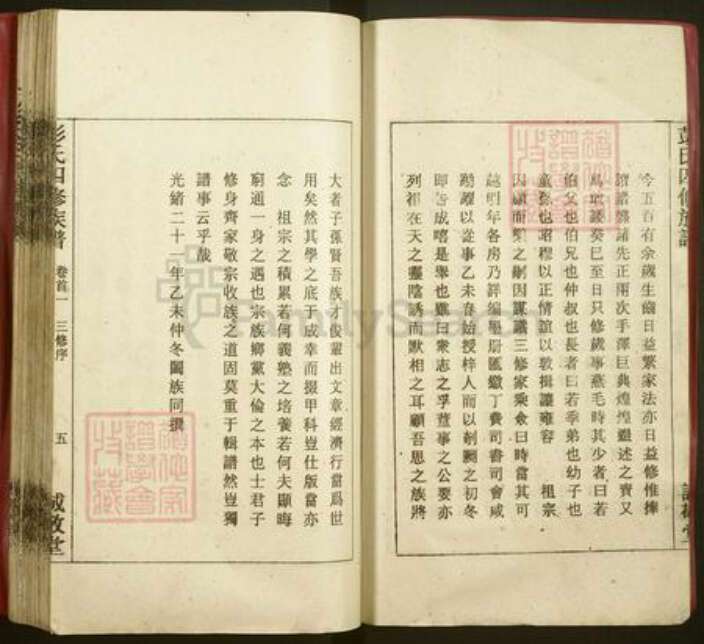 今五百有余歲生齒日益繁家法亦日益修惟捧
諸先正兩次手澤巨典煌煌繼述之責又
癸巳至日只修歲事燕毛時其少者曰若
伯父也伯兄也仲叔也長者曰若季弟也幼子也
童孫也昭穆以正情誼以敦揖讓雍容 祖宗
因顧而樂之嗣因謀議三修家乘僉曰時當其可
越明年各房乃詳編墨册匯繳丁費司書司會咸
踴躍以從事乙未春始授梓人而以剞劂之初冬
即告成嘻是舉也雖曰衆志之孚董事之公要亦
列祖在天之靈陰誘而默相之耳顧吾思之族將
大者子孫賢吾族才俊輩出文章經濟行當爲世
用矣然其學之底于成幸而掇甲科豈仕版當亦
念 祖宗之積累若何義塾之培養若何夫顯晦
窮通一身之遇也宗族鄉黨大倫之本也士君子
修身齊家敬宗收族之道固莫重于輯譜然豈獨
譜事云乎哉
光緒二十一年乙未仲冬闔族同撰
彭氏四修族譜
卷首一
三修序
五
誠敬堂
FamilySearch